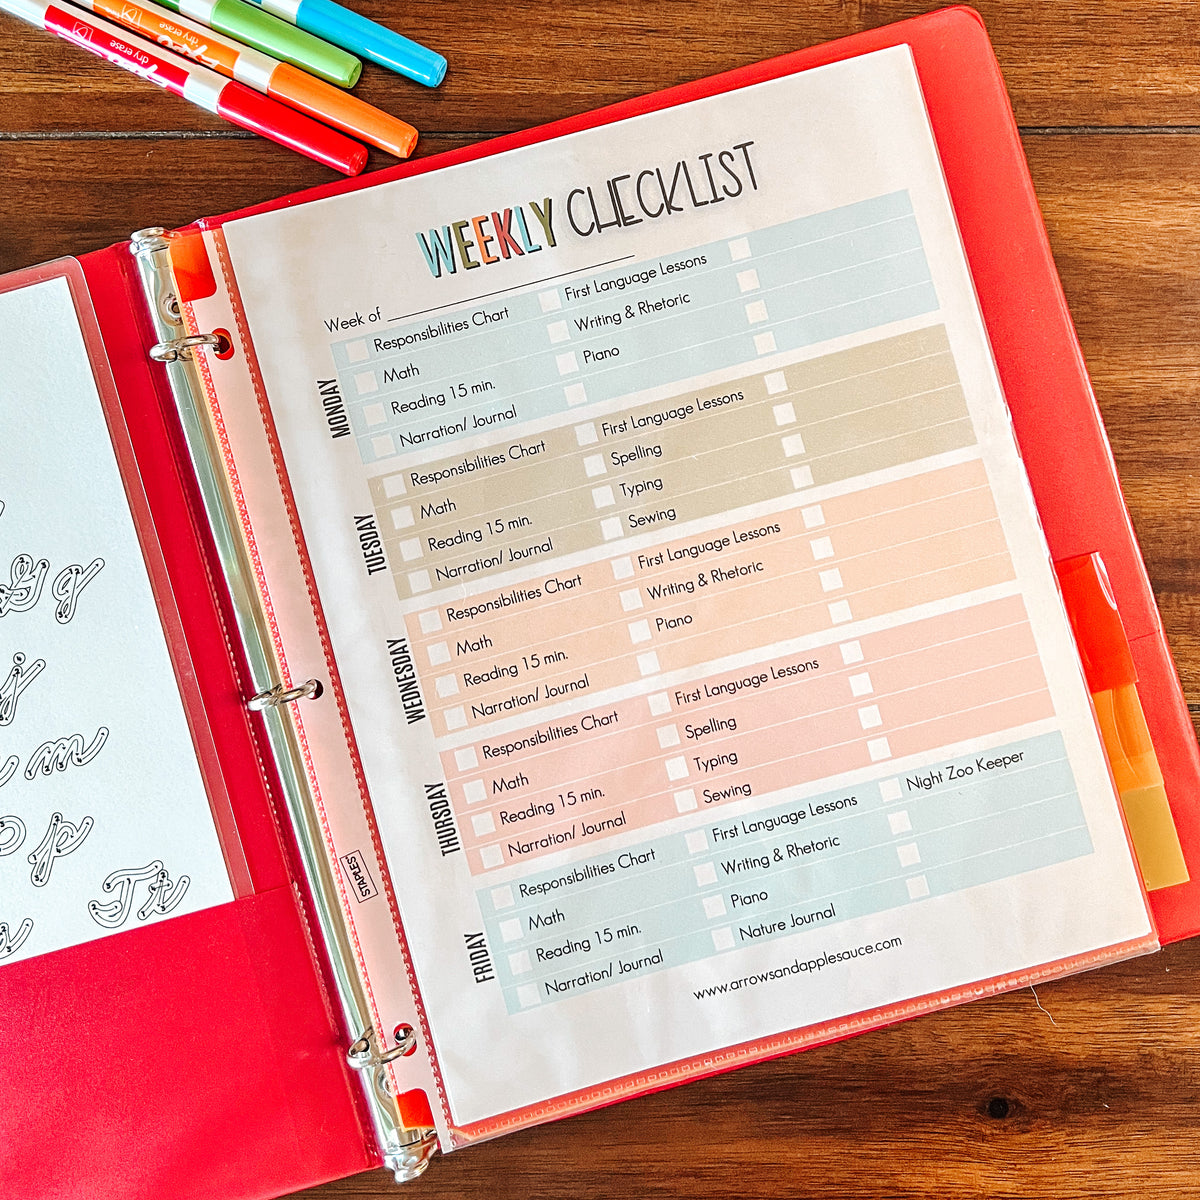 EXPO dry erase
EXPO dry erase
WEEKLY CHECKLIST
Week of
MONDAY
Responsibilities Chart First Language Lessons
Math Writing & Rhetoric
Reading 15 min. Piano
Narration/ Journal
TUESDAY
Responsibilities Chart First Language Lessons
Math Spelling
Reading 15 min. Typing
Narration/ Journal Sewing
WEDNESDAY
Responsibilities Chart First Language Lessons
Math Writing & Rhetoric
Reading 15 min. Piano
Narration/ Journal
THURSDAY
Responsibilities Chart First Language Lessons
Math Spelling
Reading 15 min. Typing
Narration/ Journal Sewing
FRIDAY
Responsibilities Chart First Language Lessons Night Zoo Keeper
Math Writing & Rhetoric
Reading 15 min. Piano
Narration/ Journal Nature Journal
www.arrowsandapplesauce.com
STAPLES
G g
j
m
p
T t